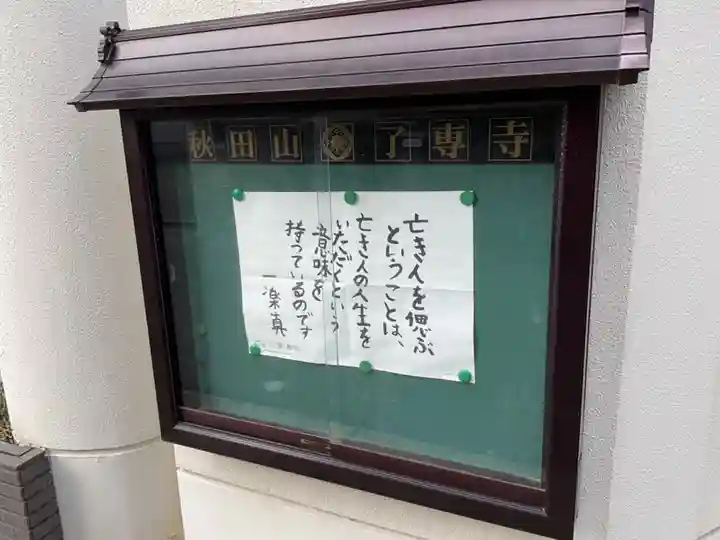 秋田山 了専寺
亡き人を偲ぶ
ということは、
亡き人の人生を
いただくという
意味を
持っているのです
一楽真